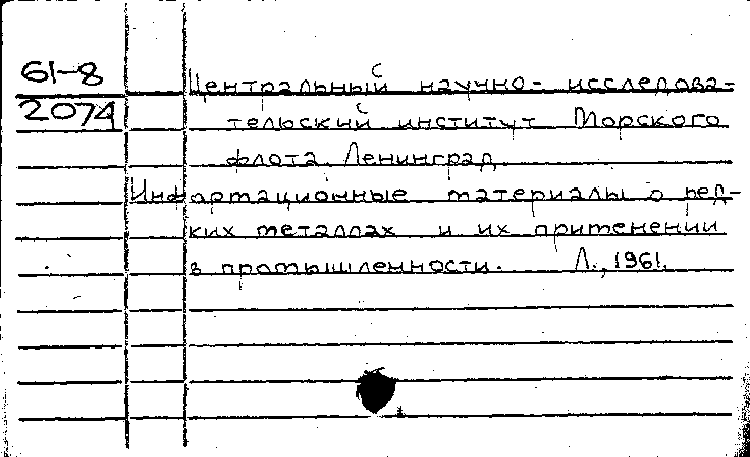 61-8
2074
Центральный научно-исследова-
тельский институт Морского
флота. Ленинград.
Информационные материалы о ред-
ких металлах и их применении
в промышленности. Л., 1961.